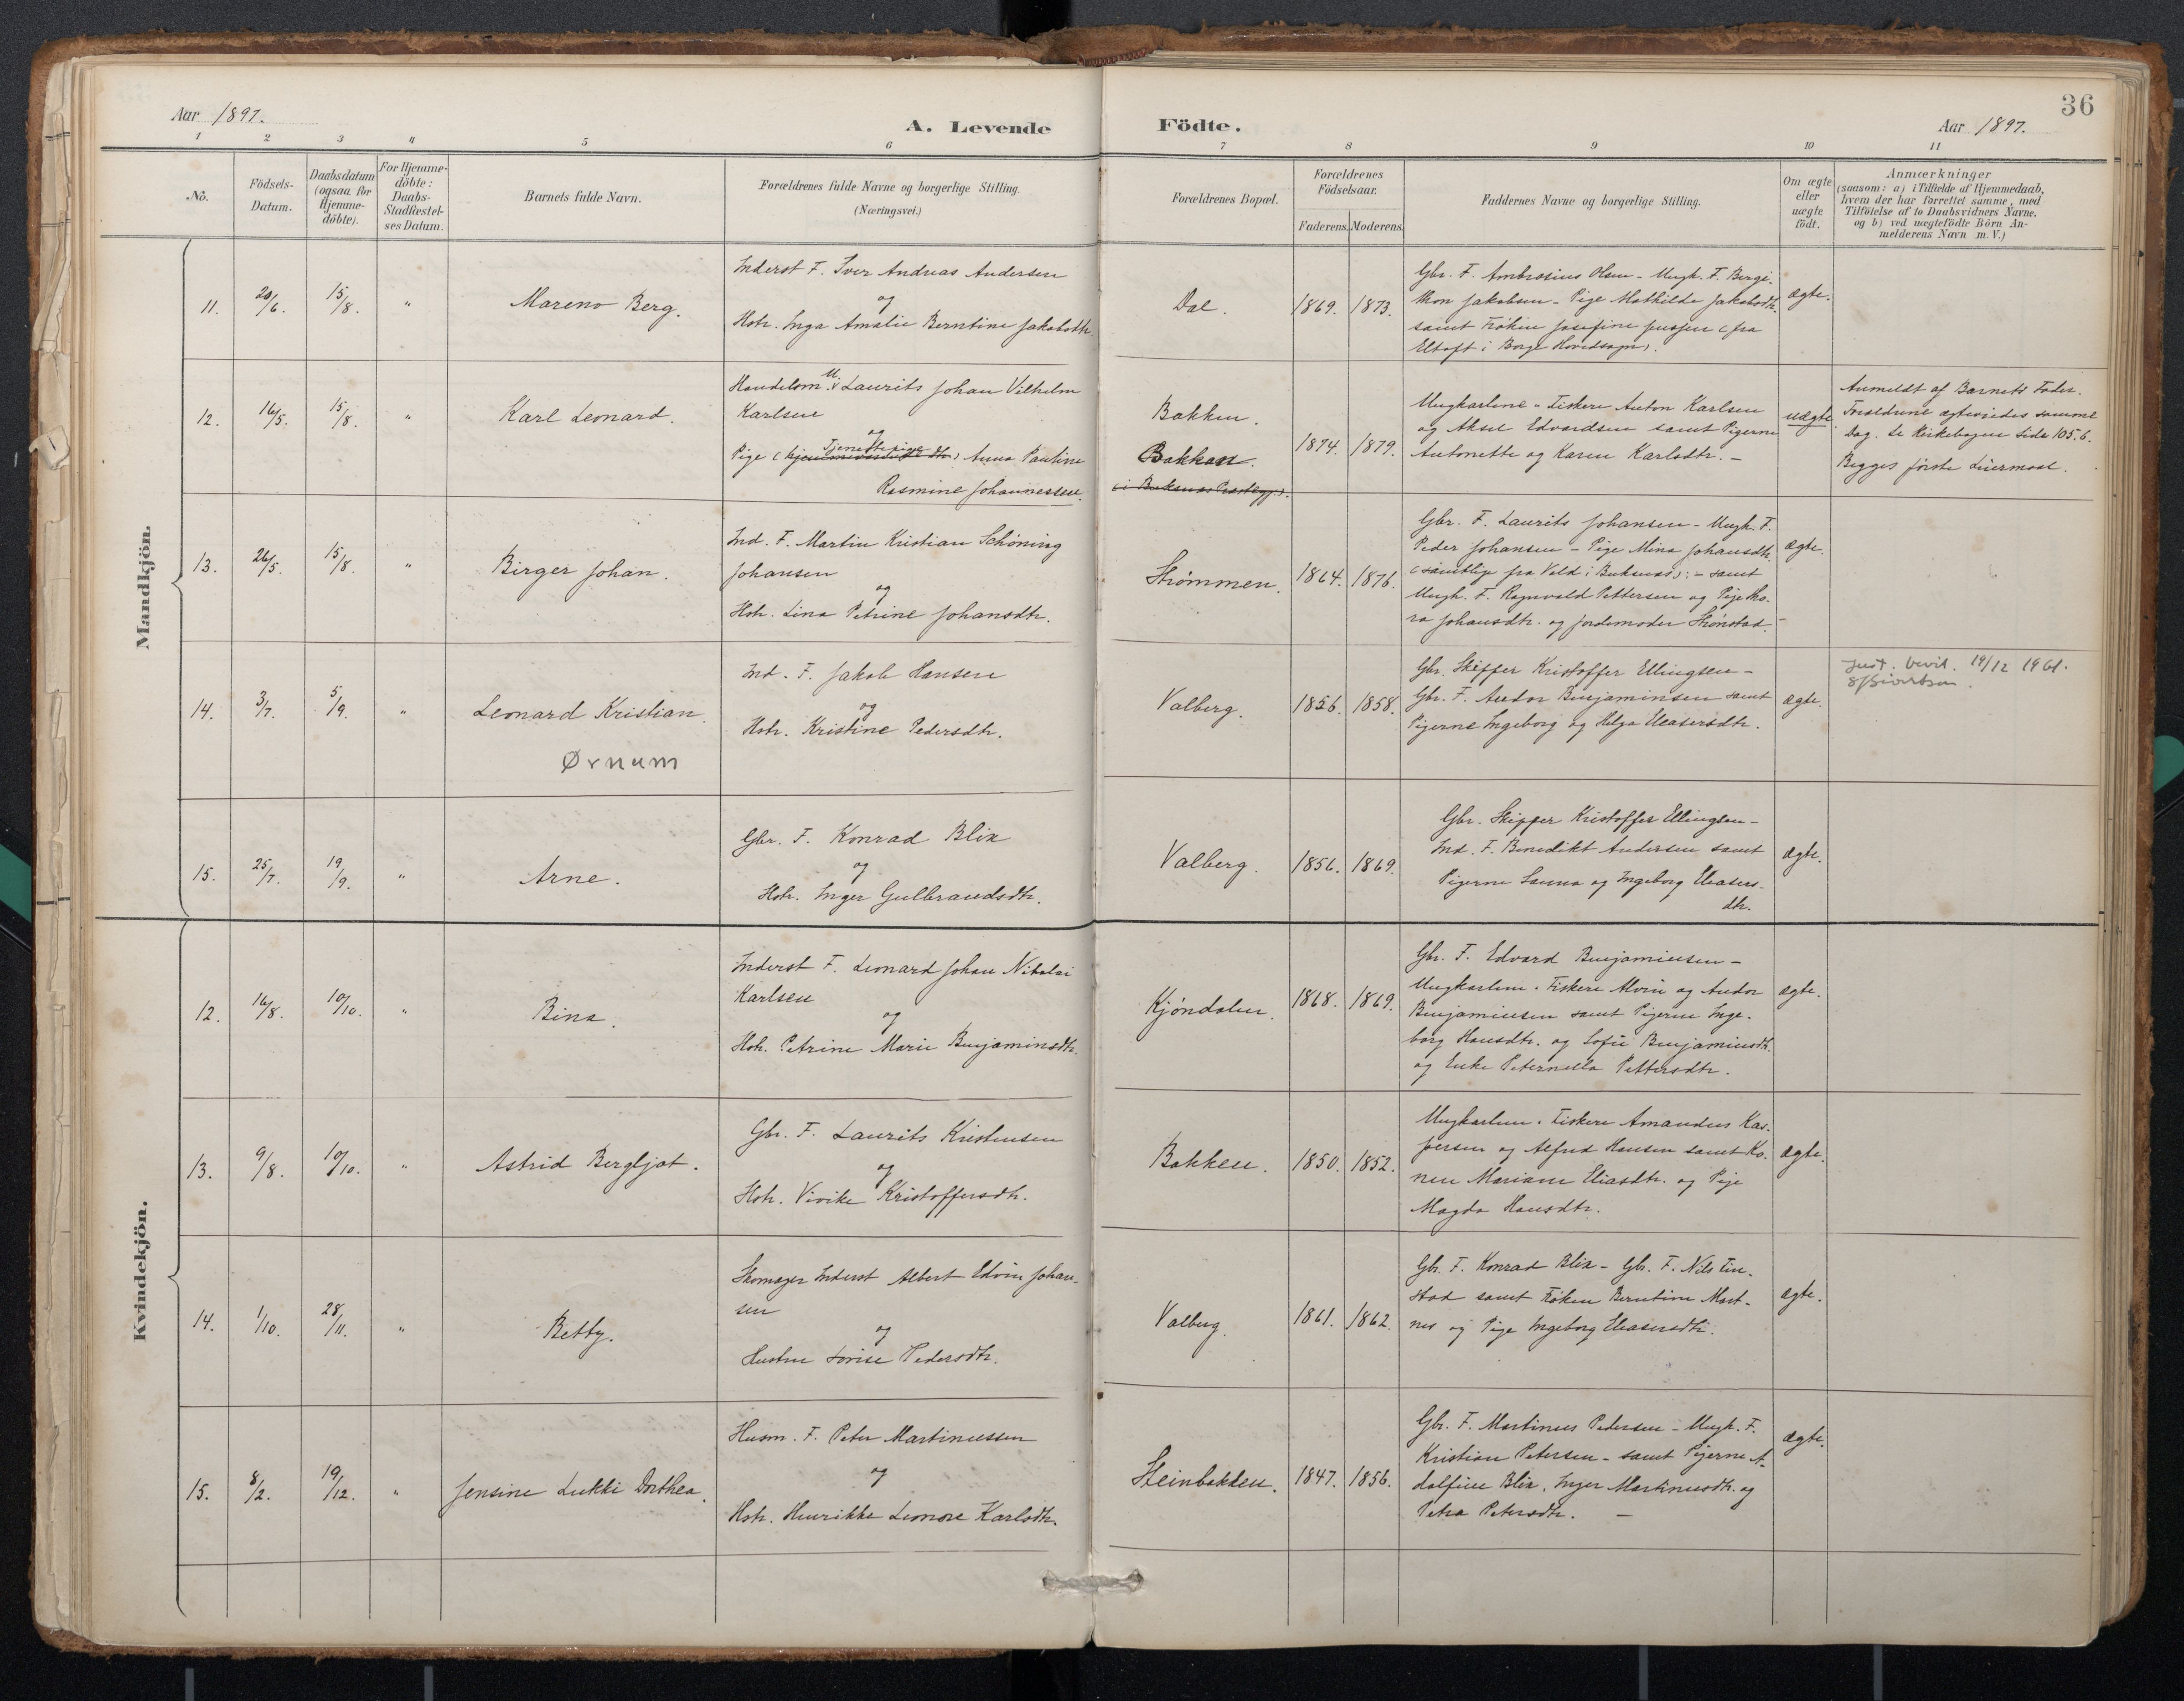 36
Aar 1897.
A. Levende Födte.
Aar 1897.
1 2 3 4 5 6 7 8 9 10 11
No.
Födsels-
Datum.
Daabsdatum
(ogsaa for
Hjemme-
döbte).
For Hjemme-
döbte:
Daabs-
Stadfæstel-
ses Datum.
Barnets fulde Navn.
Forældrenes fulde Navne og borgerlige Stilling.
(Næringsvei.)
Forældrenes Bopæl.
Forældrenes
Födselsaar.
Faderens. Moderens.
Faddernes Navne og borgerlige Stilling.
Om ægte
eller
uægte
födt.
Anmærkninger
(saasom: a) i Tilfælde af Hjemmedaab,
hvem der har forrettet samme, med
Tilföielse af to Daabsvidners Navne.
og b) ved uægtefödte Börn An-
melderens Navn m. V.)
Mandkjön.
11. 20/6. 15/8. "
Mareno Berg.
Inderst F. Iver Andreas Andersen
og
Hstr. Inga Amalie Berntine Jakobsdtr.
Dal.
1869. 1873.
Gbr. F. Ambrosius Olsen - Ungk. F. Bergi-
thon Jakobsen - Pige Mathilde Jakobsdtr.
samt Frøken Josefine (fra
Eltoft i Borge Hovedsogn).
ægte.
12. 16/5. 15/8. "
Karl Leonard.
Handelsm. Laurits Johan Vilhelm
Karlsen
og
Pige (Tjenestepige) Anna Pauline
Rasmine Johannessen.
Bakken.
Bakkan.
1874. 1879.
Ungkarlene - Fiskere Anton Karlsen
og Aksel Edvardsen samt Pigerne
Antonette og Karen Karlsdtr. -
uægte
Anmeldt af Barnets Fader.
Forældrene ægteviedes samme
Dag. Se Kirkebogen Side 105. 6.
Begges første Leiermaal.
13. 26/5. 15/8. "
Birger Johan.
Ind. F. Martin Kristian Schöning
Johansen
og
Hstr. Lina Petrine Johansdtr.
Strømmen.
1864. 1876.
Gbr. F. Laurits Johansen - Ungk. F.
Peder Johansen - Pige Mina Johansdtr.
(samtlige fra Vold i Buksnæs): - samt
Ungk. F. Ragnvald Pettersen og Pige Tho-
ra Johansdtr. og Jordemoder Strønstad.
ægte.
14. 3/7. 5/9. "
Leonard Kristian.
Ørnum
Ind. F. Jakob Hansen
og
Hstr. Kristine Pedersdtr.
Valberg.
1856. 1858.
Gbr. Skipper Kristoffer Ellingsen -
Gbr. F. Andor Benjaminsen samt
Pigerne Ingeborg og Helga Eleasersdtr.
ægte.
Just. bevil. 19/12 1961.
15. 25/7. 19/9. "
Arne.
Gbr. F. Konrad Blix
og
Hstr. Inger Gulbrandsdtr.
Valberg.
1856. 1869.
Gbr. Skipper Kristoffer Ellingsen -
Ind. F. Benedikt Andersen samt
Pigerne Sanna og Ingeborg Eleasers-
dtr.
ægte.
Kvindekjön.
12. 16/8. 10/10. "
Bina.
Inderst F. Leonard Johan Nikolai
Karlsen
og
Hstr. Petrine Marie Benjaminsdtr.
Kjøndalen.
1868. 1869.
Gbr. F. Edvard Benjaminsen -
Ungkarlene. Fiskere Alvin og Andor
Benjaminsen samt Pigerne Inge-
borg Hansdtr. og Sofie Benjaminsdtr.
og Enke Peternella Pettersdtr.
ægte.
13. 9/8. 10/10. "
Astrid Bergljot.
Gbr. F. Laurits Kristensen
og
Hstr. Vivike Kristoffersdtr.
Bakken.
1850. 1852.
Ungkarlene. Fiskere Amandus Kas-
persen og Alfred Hansen samt Ko-
nen Mariane Eliasdtr. og Pige
Magda Hansdtr.
ægte.
14. 1/10. 28/11. "
Betty.
Skomager Inderst Albert Edvin Johan-
sen
og
Hustru Lovise Pedersdtr.
Valberg.
1861. 1862.
Gbr. F. Konrad Blix - Gbr. F. Nils Fin-
stad samt Frøken Berntine Mort-
nes og Pige Ingeborg Eleasersdtr.
ægte.
15. 8/2. 19/12. "
Jensine Lukki Dorthea.
Husm. F. Peter Martinussen
og
Hstr. Henrikke Leonore Karlsdtr.
Steinbakken.
1847. 1856.
Gbr. F. Martinus Pedersen - Ungk. F.
Kristian Petersen - samt Pigerne A-
dolfine Blix, Inger Martinusdtr. og
Petra Petersdtr. -
ægte.